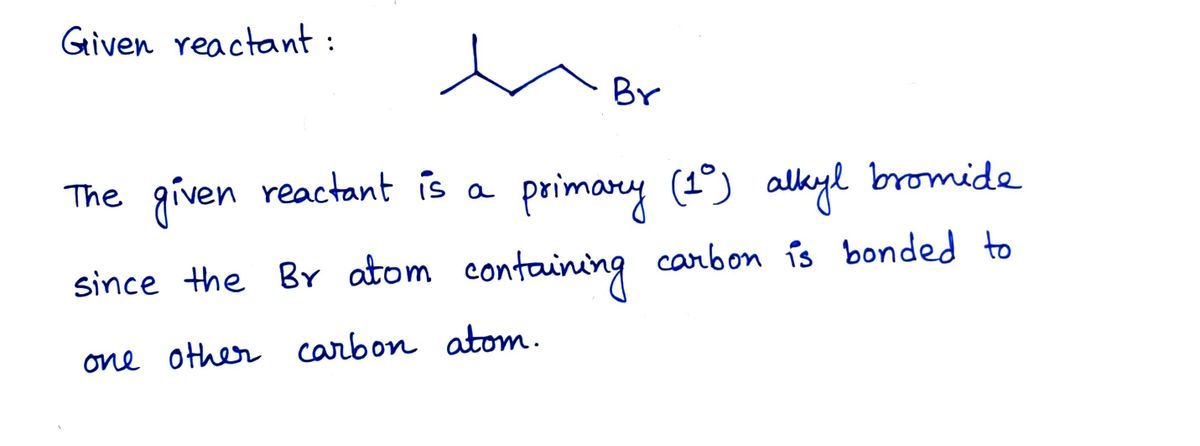 Given reactant :
Br
The given reactant is a primary (1°) alkyl bromide
since the Br atom containing carbon is bonded to
one other carbon atom.